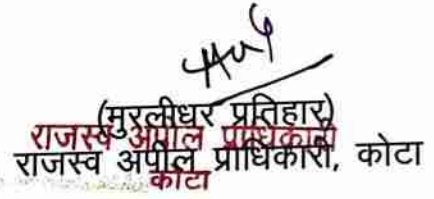 (मुरलीधर प्रतिहार)
राजस्व अपील प्राधिकारी
राजस्व अपील प्राधिकारी, कोटा
कोटा